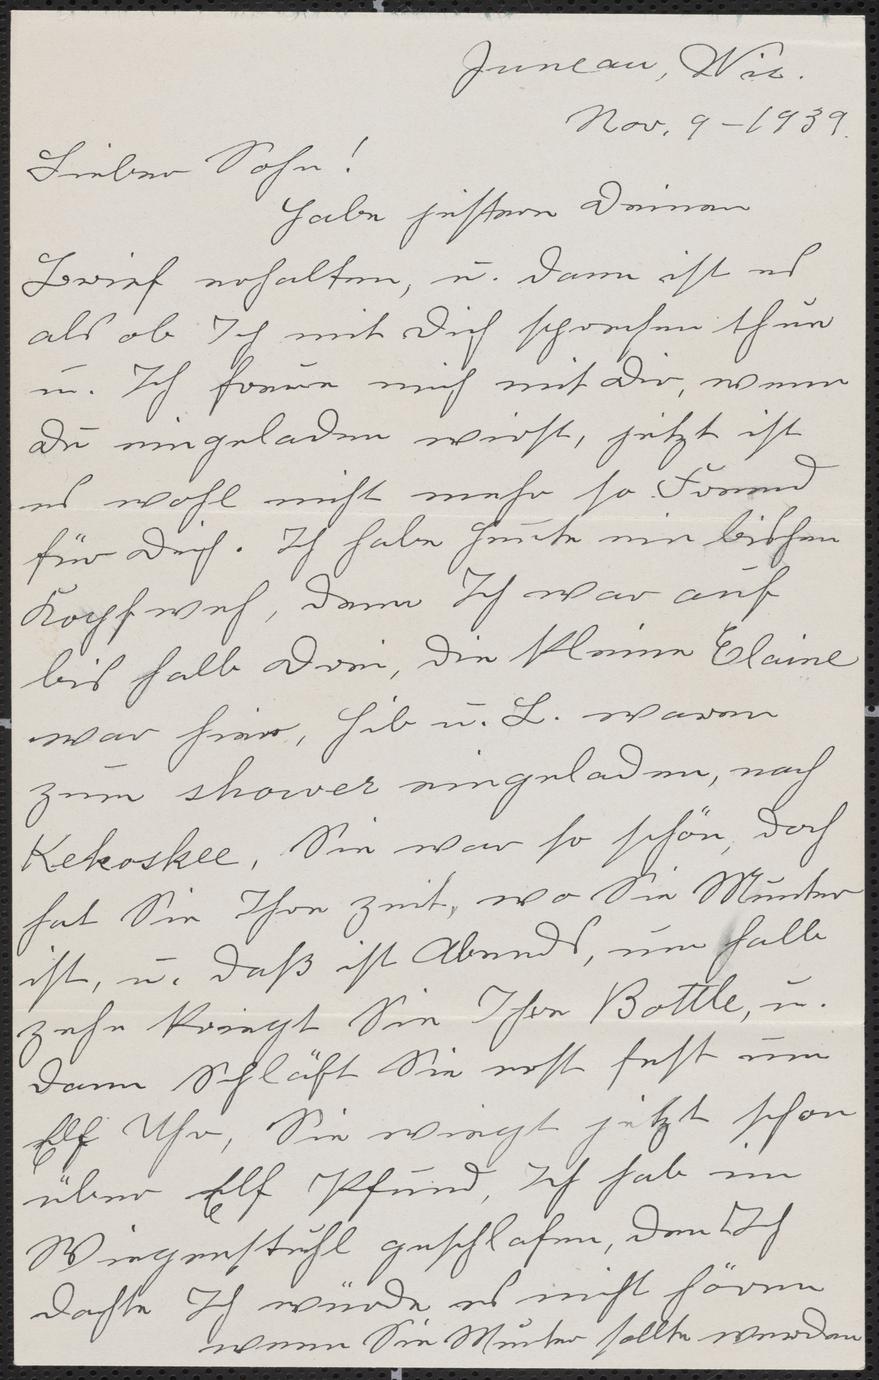 Juneau, Wis.
Nov. 9 – 1939.
Lieber Sohn!
Habe jestern Deinen
Brief erhalten, u. dann ist es
als ob Ich mit Dich sprechen thue
u. Ich freue mich mit Dir, wenn
Du eingeladen wirst, jetzt ist
es wohl nicht mehr so Fremd
für Dich. Ich habe Heute ein bischen
Kopfweh, denn Ich war auf
bis halb Drei, die kleine Elaine
war hier, Hib u. L. waren
zum shower eingeladen, nach
Kekoskee, Sie war so schön, doch
hat Sie Ihre zeit, wo Sie Munter
ist, u. daß ist Abends, um halb
zehn kriegt Sie Ihre Bottle, u.
dann Schläft Sie erst fest um
Elf Uhr, Sie wiegt jetzt schon
über Elf Pfund, Ich hab im
Wiegenstuhl geschlafen, den Ich
dachte Ich würde es nicht hören
wenn Sie Munter sollte werden